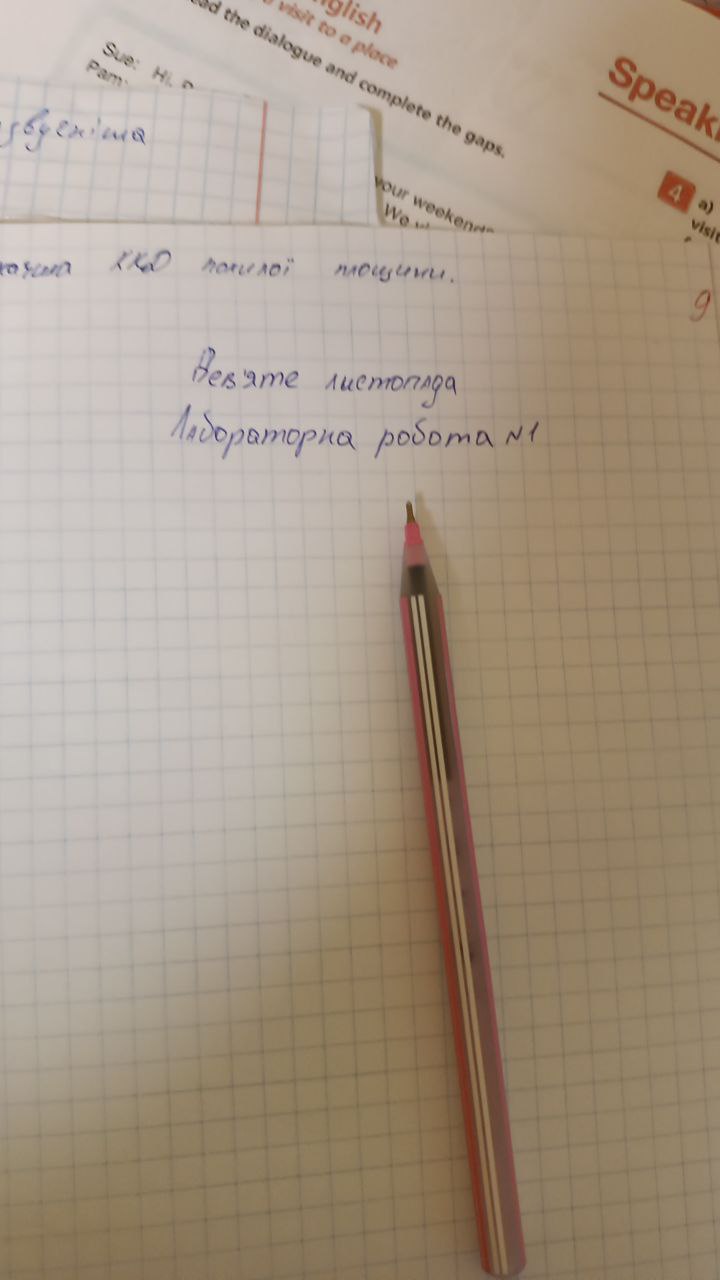 nglish
visit to a place
ead the dialogue and complete the gaps.
Sue: Hi,
Pam:
Speak
4 a)
visit
your weekends
We
ККД похилої площини.
9
Дев'яте листопада
Лабораторна робота №1